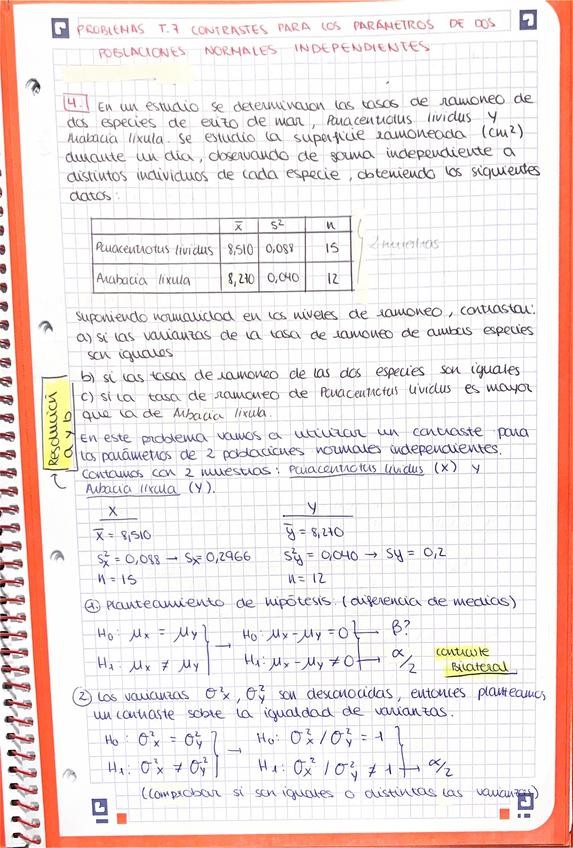 PROBLEMAS T.7 CONTRASTES PARA LOS PARÁMETROS DE DOS
POBLACIONES NORMALES INDEPENDIENTES
4. En un estudio se determinaron las tasas de ramoneo de
dos especies de erizo de mar, Paracentrotus lividus y
Arabacia lixula. Se estudio la superficie ramoneada (cm²)
durante un día, observando de forma independiente a
distintos individuos de cada especie, obteniendo los siguientes
datos:
x̄ S² n
Paracentrotus lividus 8,510 0,088 15
Arabacia lixula 8,210 0,040 12
2 muestras
Suponiendo normalidad en los niveles de ramoneo, contrastar:
a) si las varianzas de la tasa de ramoneo de ambas especies
son iguales
b) si las tasas de ramoneo de las dos especies son iguales
c) si la tasa de ramoneo de Paracentrotus lividus es mayor
que la de Arbacia lixula.
Resolución
a y b
En este problema vamos a utilizar un contraste para
los parámetros de 2 poblaciones normales independientes.
Contamos con 2 muestras: Paracentrotus lividus (X) y
Arbacia lixula (Y).
X Y
x̄ = 8,510 ȳ = 8,210
S²x = 0,088 → Sx = 0,2966 S²y = 0,040 → Sy = 0,2
n = 15 n = 12
1. Planteamiento de hipótesis. (diferencia de medias)
H₀: μx = μy → H₀: μx - μy = 0 → β?
H₁: μx ≠ μy H₁: μx - μy ≠ 0 → α/2
contraste
Bilateral
2 Las varianzas σ²x, σ²y son desconocidas, entonces planteamos
un contraste sobre la igualdad de varianzas.
H₀: σ²x = σ²y → H₀: σ²x / σ²y = 1
H₁: σ²x ≠ σ²y H₁: σ²x / σ²y ≠ 1 → α/2
(comprobar si son iguales o distintas las varianzas)